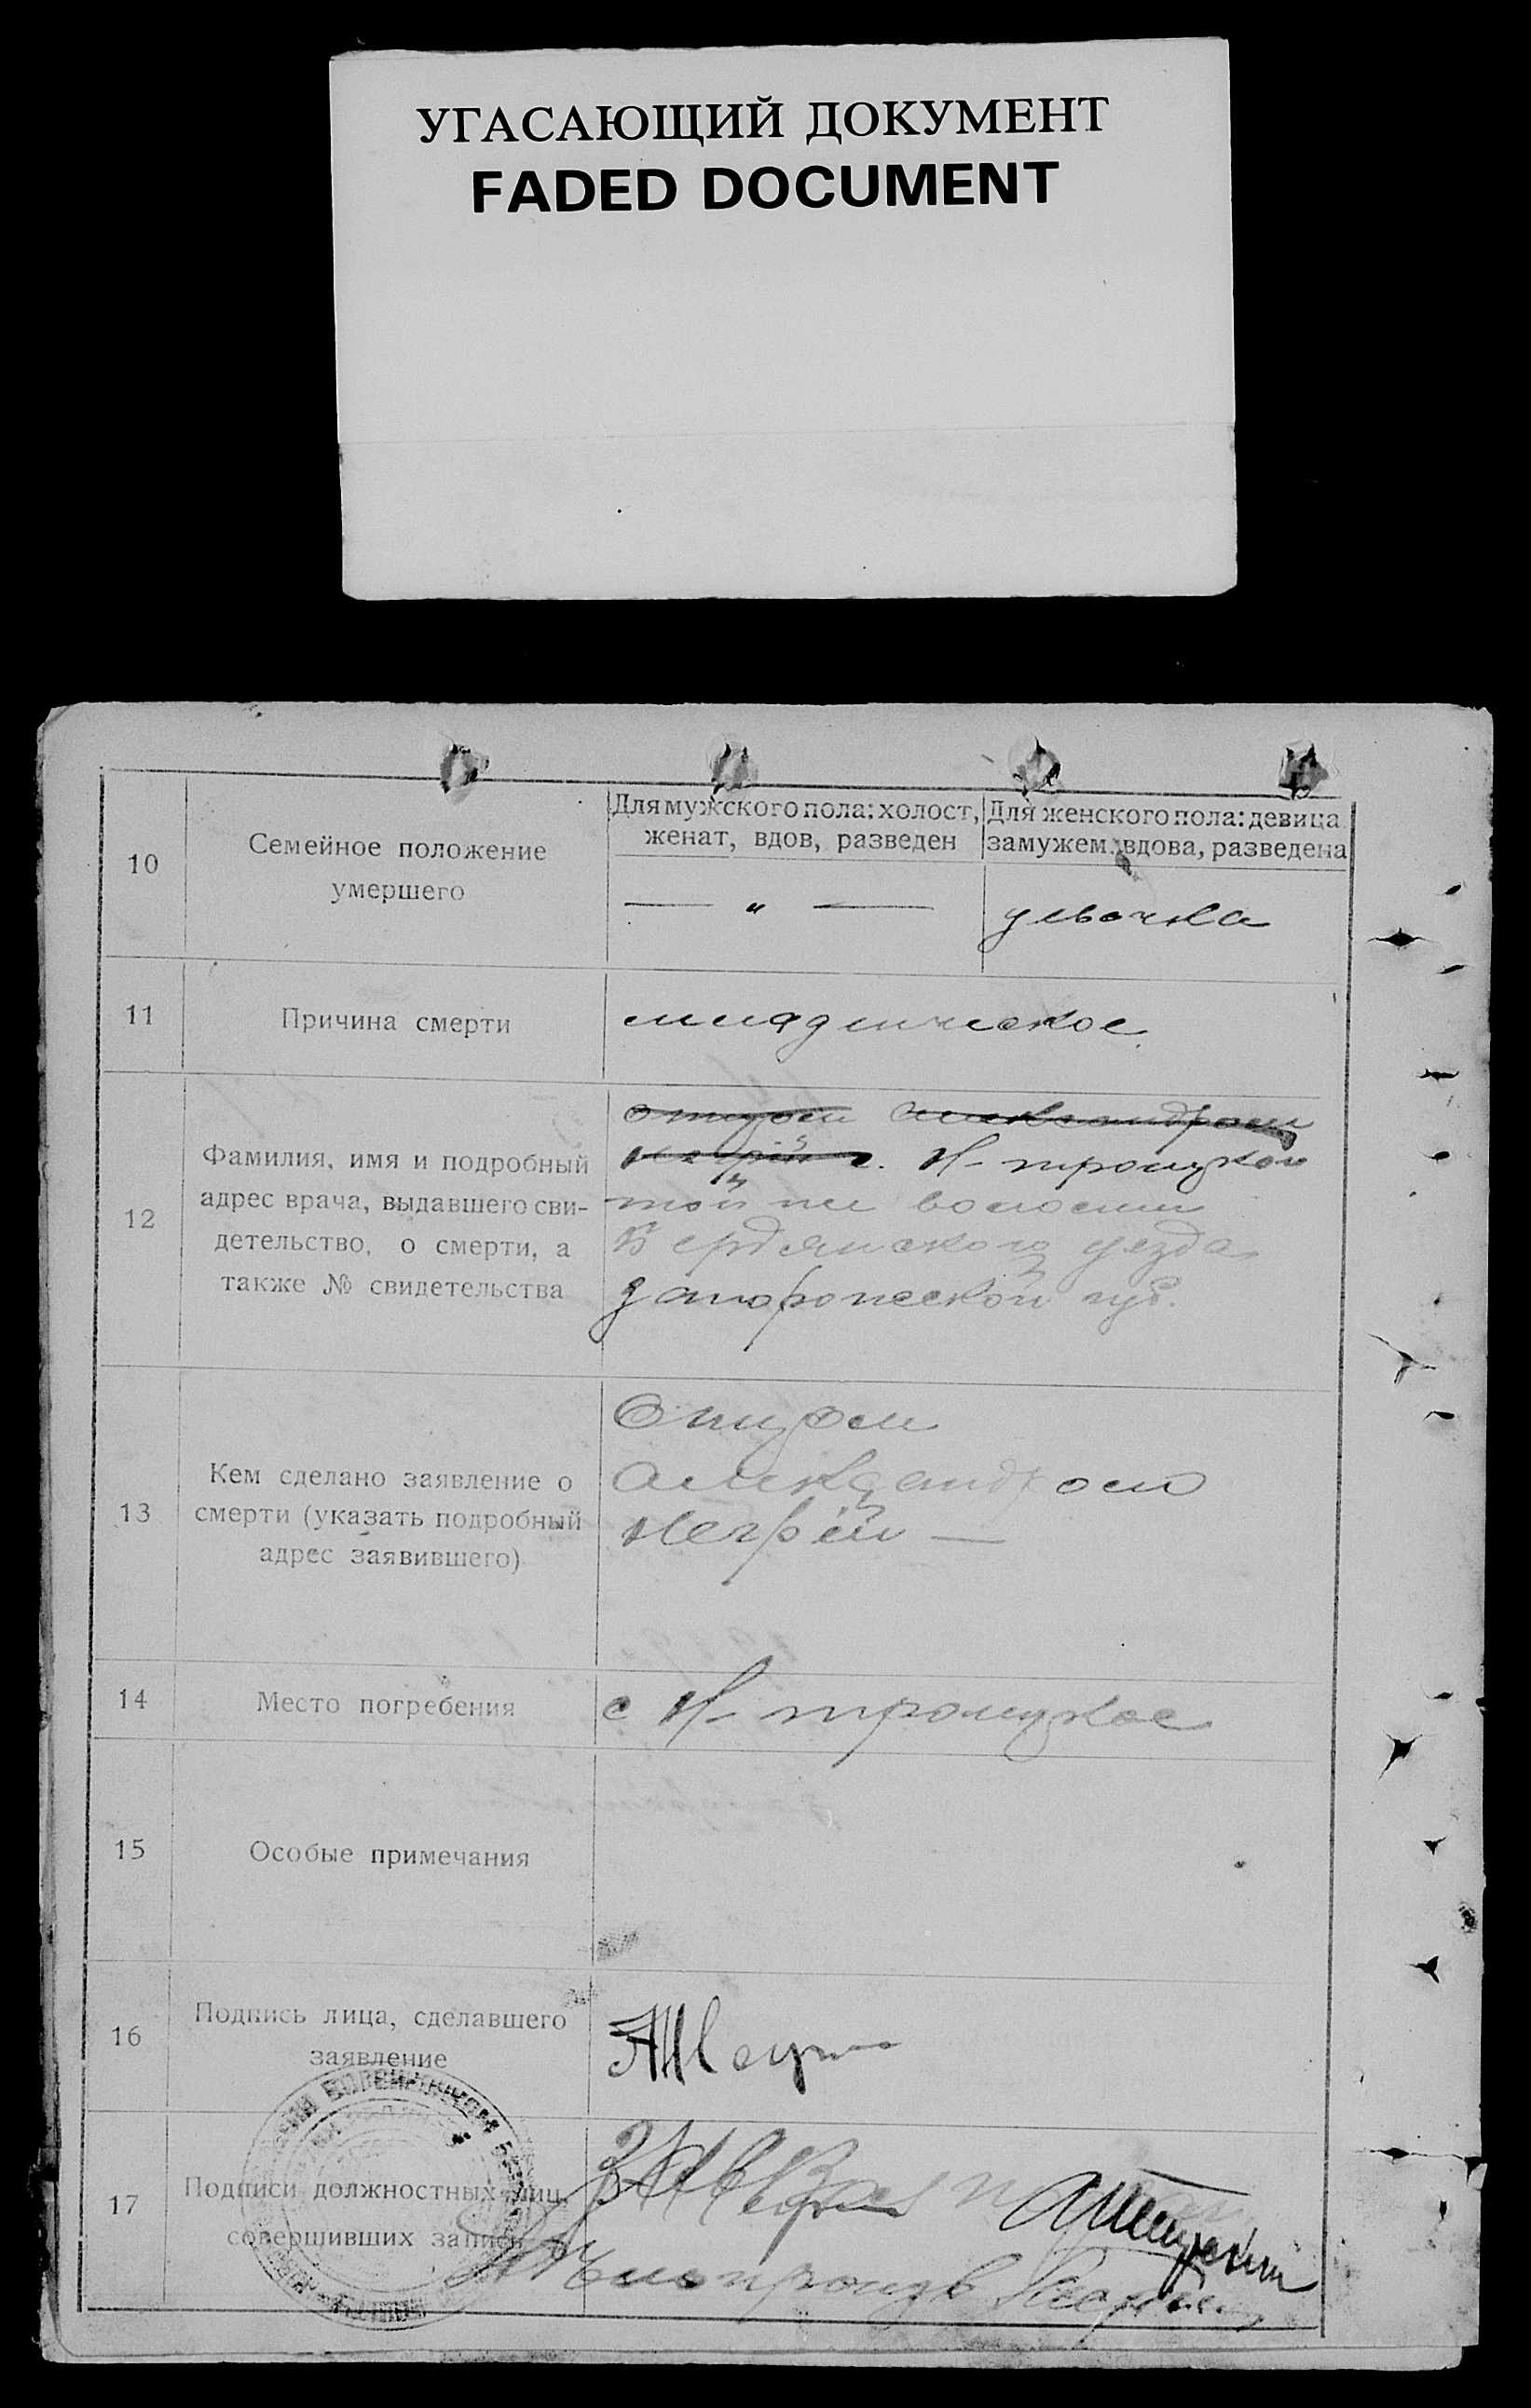 УГАСАЮЩИЙ ДОКУМЕНТ
FADED DOCUMENT
10
Семейное положение
умершего
Для мужского пола: холост,
женат, вдов, разведен
Для женского пола: девица
замужем. вдова, разведена
— „ —
девочка
11
Причина смерти
младенческое
12
Фамилия, имя и подробный
адрес врача, выдавшего сви-
детельство, о смерти, а
также № свидетельства
отцом Александром
Негрей с. Н-троицкой
той же волости
Бердянского уезда
Запорожской губ.
13
Кем сделано заявление о
смерти (указать подробный
адрес заявившего)
Отцом
Александром
Негрей —
14
Место погребения
с Н-троицкое
15
Особые примечания
16
Подпись лица, сделавшего
заявление
17
Подписи должностных лиц,
совершивших запись